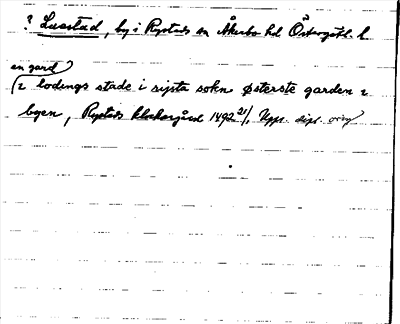 ? Lustad, by i Rystads sn Åkerbo hd Östergötl. l.
en gard
i lodings stade i rijsta sokn østerste garden i
byen, Rystads klockargård 1492 21/1 Upps. dipl. orig